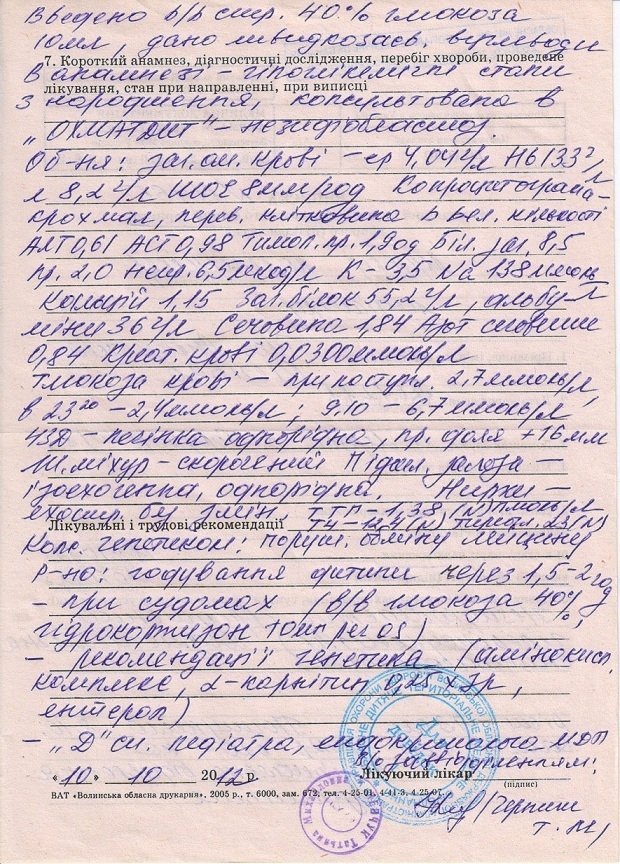 Введено в/в стр. 40% глюкоза
10мл, дано швидкозасв. вугліводи
7. Короткий анамнез, діагностичні дослідження, перебіг хвороби, проведене
В анамнезі – гіпоглікемічні стани
лікування, стан при направленні, при виписці
з народження, консультована в
„ОХМАТДИТ" –
Об-ня: заг. ан. крові – ер 4,04 г/л Нв 133 г/л
л 8,2 г/л ШОЕ 8мм/год Копроцитограма –
крохмаль, перев. клітковина в вел. кількості
АЛТ 0,61 АСТ 0,98 Тимол. пр. 1,9 од Біл. заг. 8,5
пр. 2,0 непр. 6,5 мкмод/л К – 3,5 Na 138 ммоль/л
Кальцій 1,15 Заг. білок 55,2 г/л, альбу-
міни 36 г/л Сечовина 1,84 Азот сечовини
0,84 Креат. крові 0,0300 ммоль/л
Глюкоза крові – при поступл. 2,7 ммоль/л,
в 23 20 – 2,4 ммоль/л; 9.10 – 6,7 ммоль/л
УЗД – печінка однорідна, пр. доля +16 мм
Ж. міхур – скорочений Підшл. залоза –
ізоехогенна, однорідна. Нирки –
ехостр. без змін. ТТГ – 1,38 (N)
Лікувальні і трудові рекомендації Т4 – 12,4 (N) 23 (N)
Конс. генетиком: поруш. обміну
Р-но: годування дитини через 1,5-2 год
– при судомах (в/в глюкоза 40%,
гідрокортизон per os)
– рекомендації генетика (амінокисл.
комплекс, L-карнітин 0,25 х 3р,
ентерол)
– „Д" сп. педіатра, ендокринолога
„10" 10 2012 р. Лікуючий лікар
(підпис)
ВАТ «Волинська обласна друкарня». 2005 р., т. 6000, зам. 672, тел. 4-25-01, 4-41-3, 4-25-07.